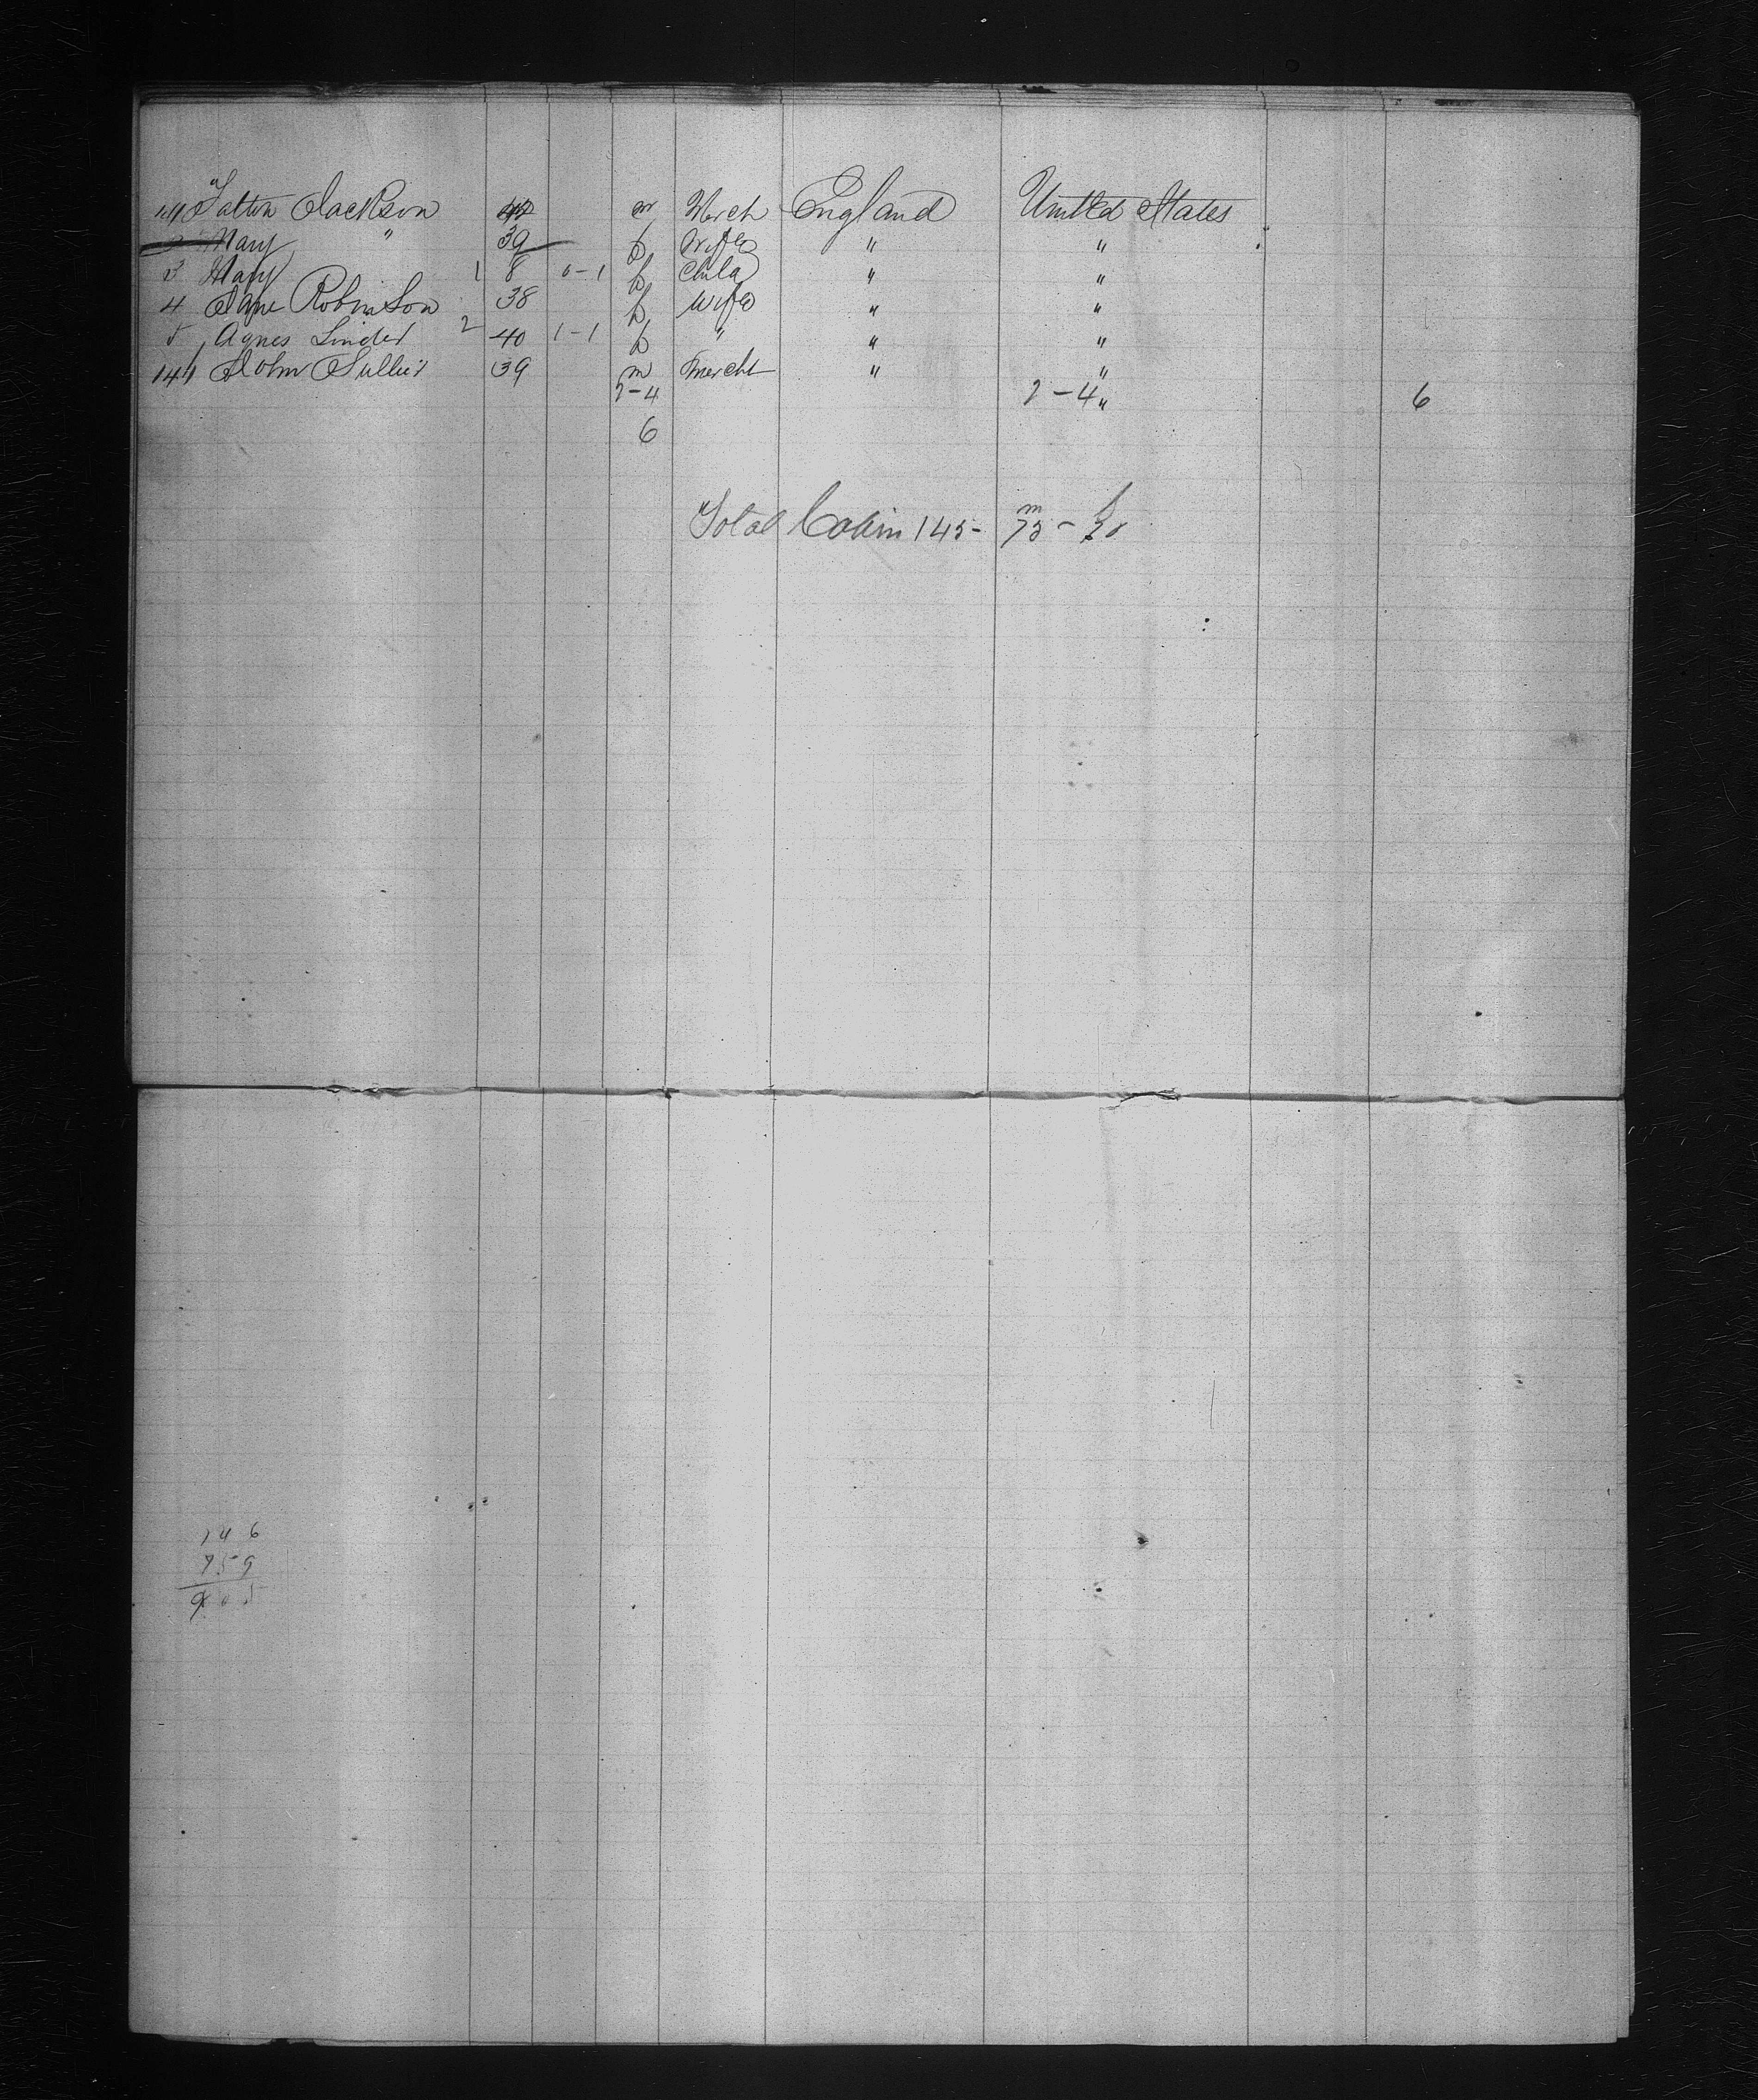 141 Tatton Jackson m Merch England United States
2 Mary " 39 f Wife " "
3 Mary 1 8 0-1 f Child " "
4 Jane Robinson 38 f Wife " "
5 Agnes 2 40 1-1 f " " "
John 39 m Mercht " "
2-4 2-4 " 6
6
m f
Total Cabin 145- 75-70
146
759
905